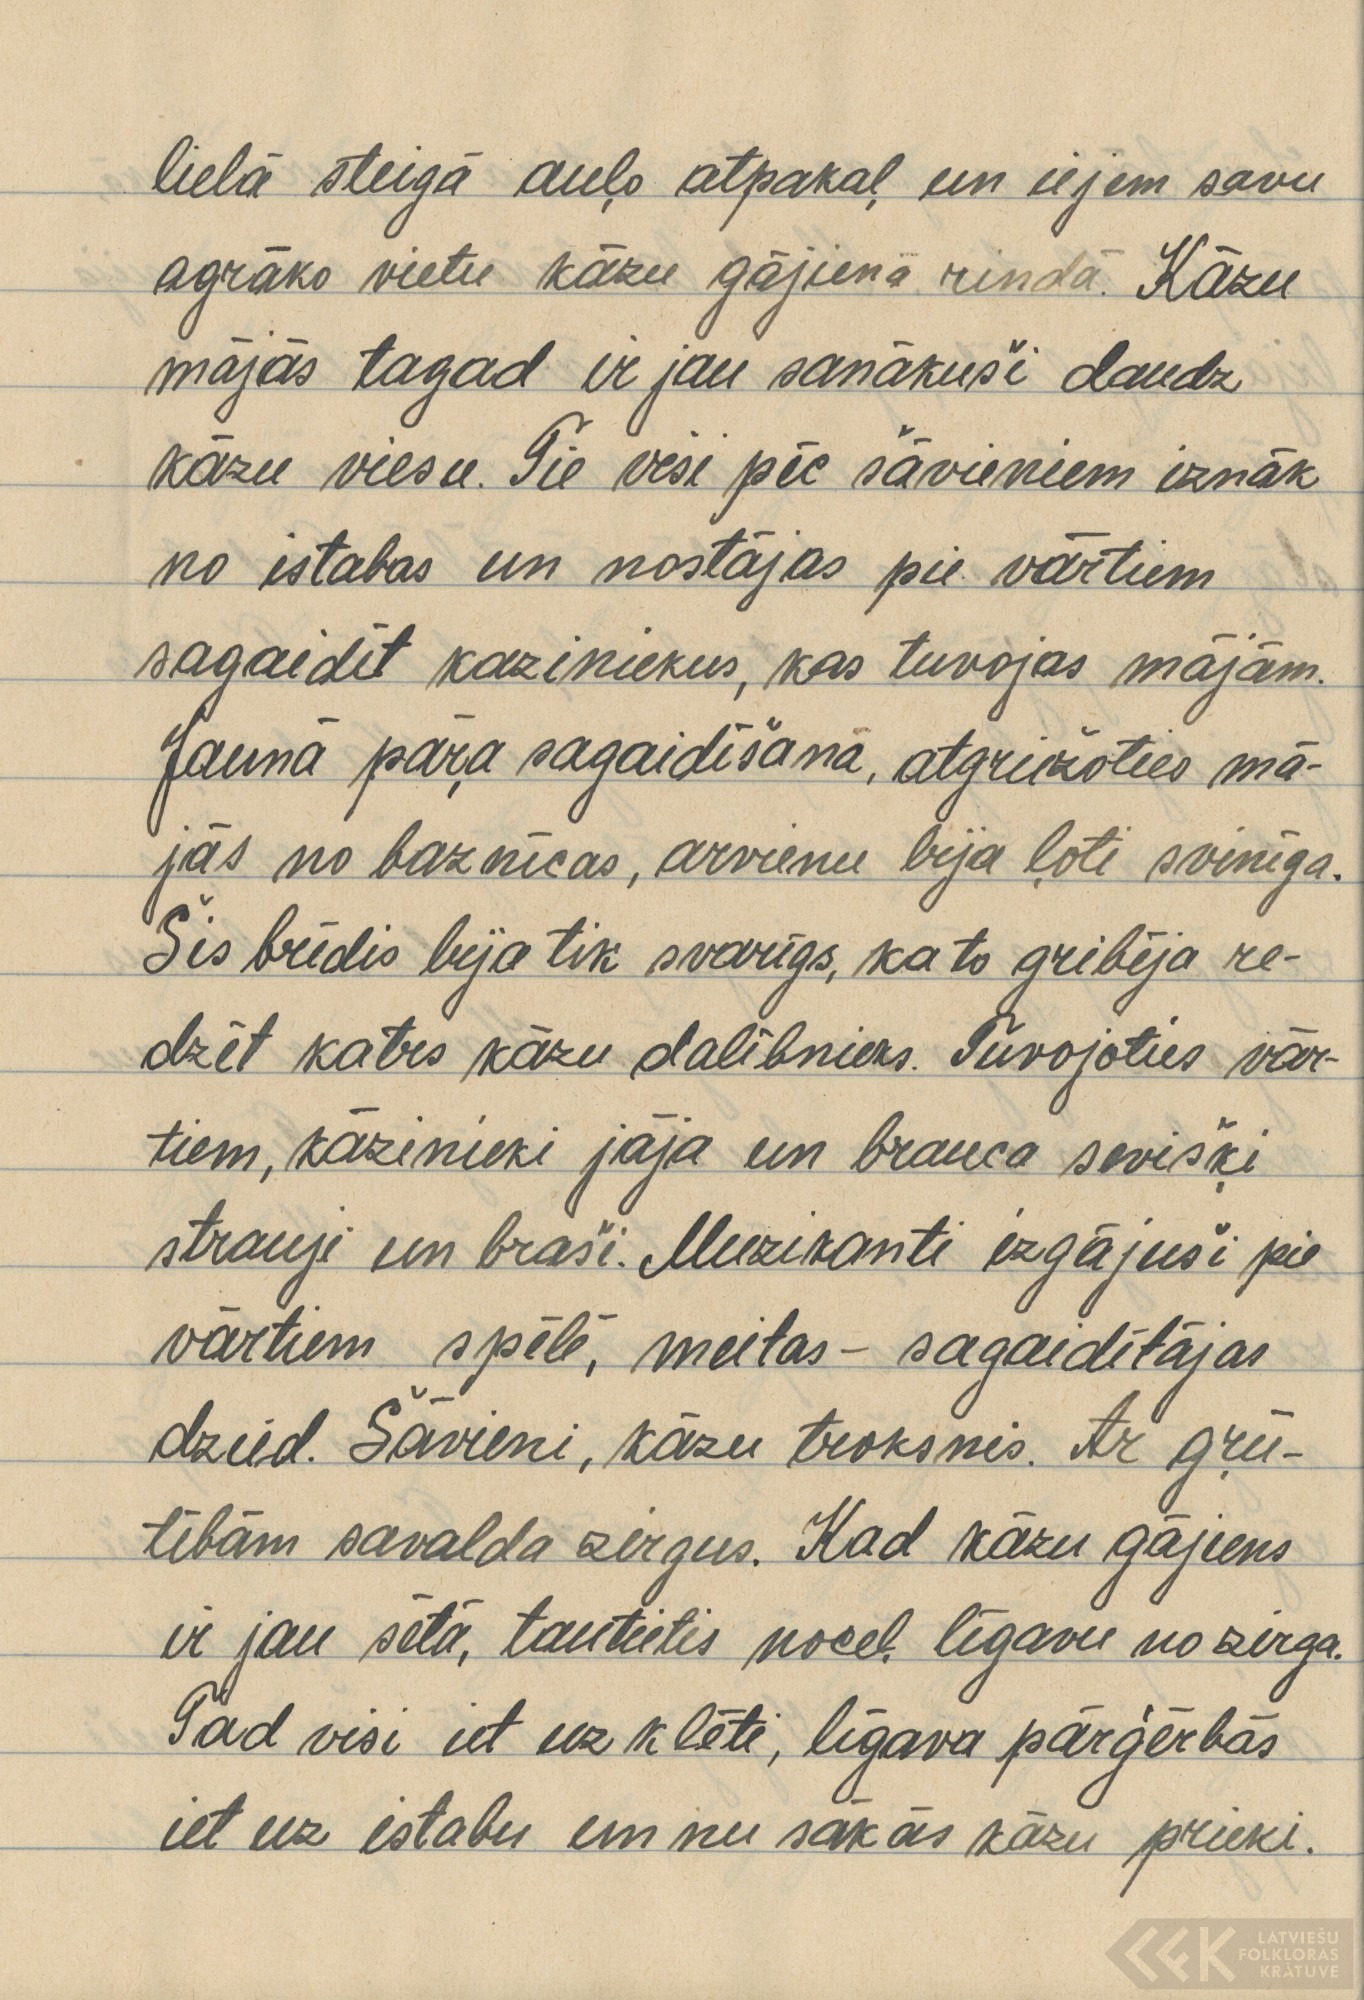 lielā steigā auļo atpakaļ un ieņem savu
agrāko vietu kāzu gājienā rindā. Kāzu
mājās tagad ir jau sanākuši daudz
kāzu viesu. Tie visi pēc šāvieniem iznāk
no istabas un nostājas pie vārtiem
sagaidīt kaziniekus, kas tuvojas mājām.
Jaunā pāŗa sagaidīšana, atgriežoties mā-
jās no baznīcas, arvienu bija ļoti svinīga.
Šis brīdis bija tik svarīgs, ka to gribēja re-
dzēt katrs kāzu dalībnieks. Tuvojoties vār-
tiem, kāzinieki jāja un brauca sevišķi
strauji un braši. Muzikanti izgājuši pie
vārtiem spēlē, meitas - sagaidītājas
dzied. Šāvieni, kāzu troksnis. Ar gŗū-
tībām savalda zirgus. Kad kāzu gājiens
ir jau sētā, tautietis noceļ līgavu no zirga.
Tad visi iet uz klēti, līgava pārģērbās
iet uz istabu un nu sākās kāzu prieki.
LATVIEŠU
FOLKLORAS
KRĀTUVE